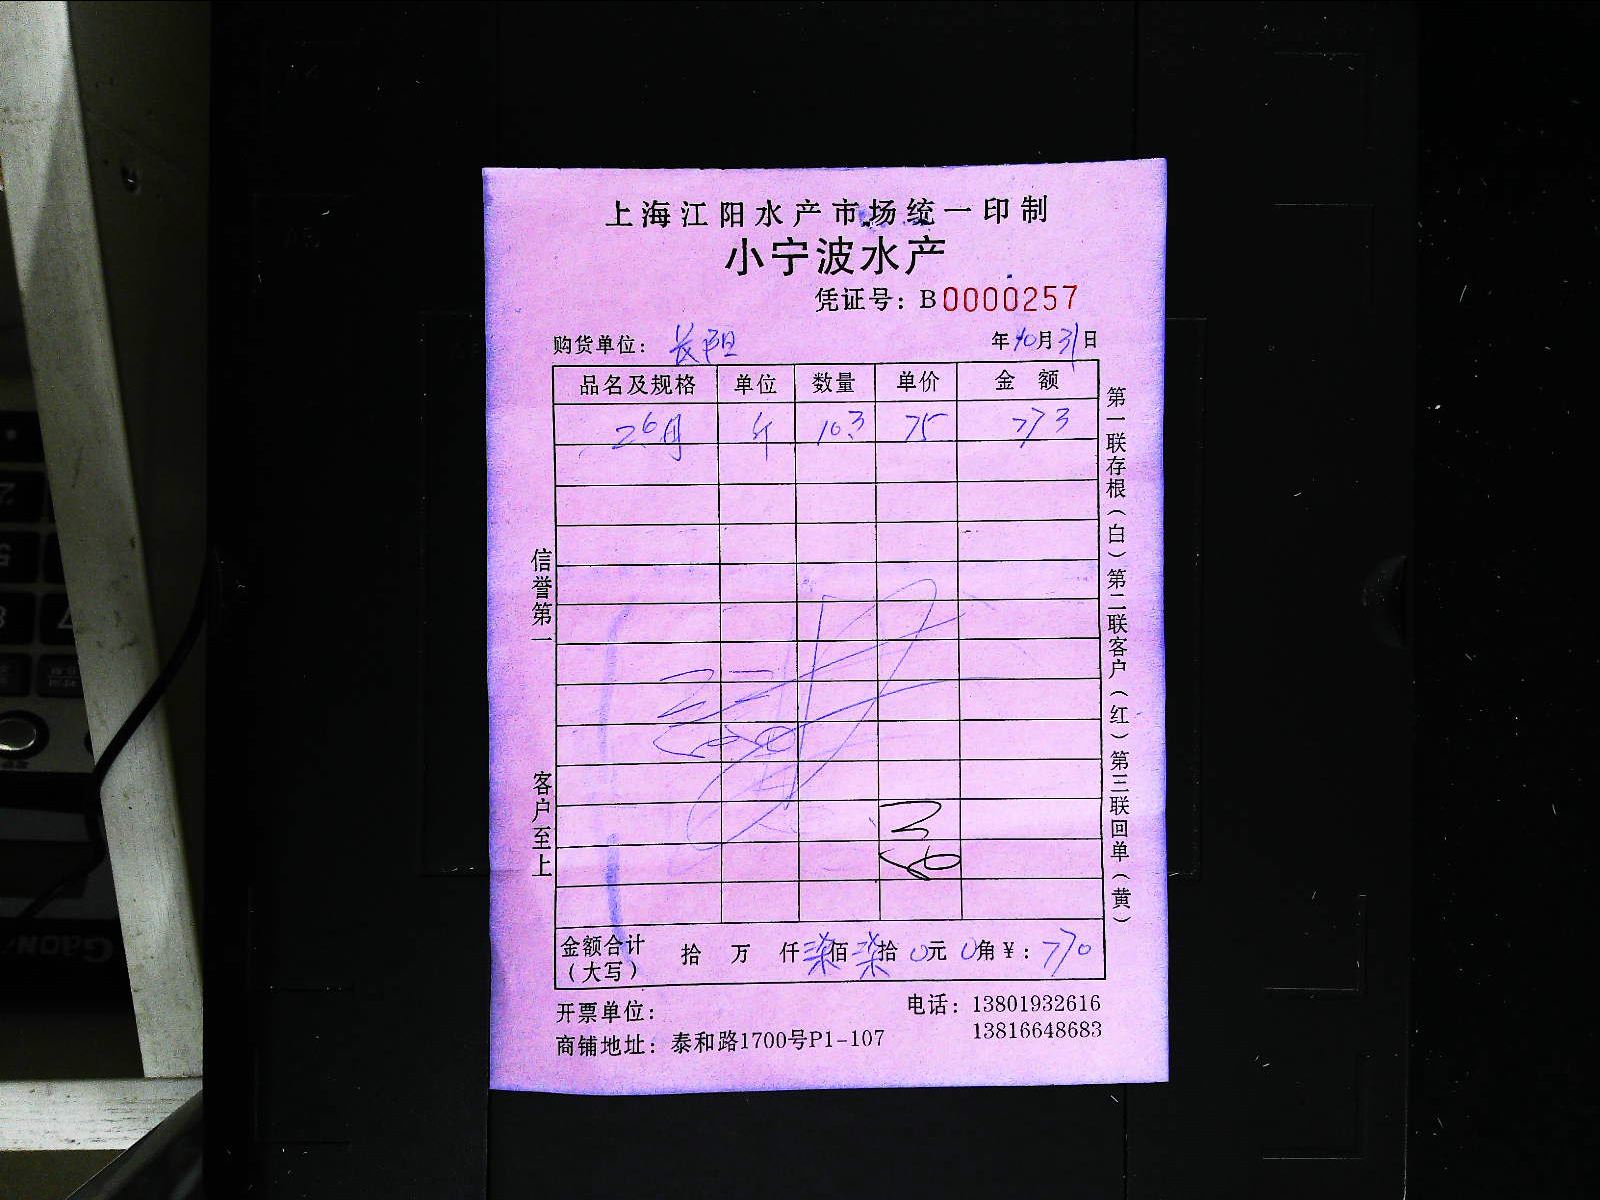 上海江阳水产市场统一印制
小宁波水产
凭证号：B0000257
购货单位：长阳
年10月31日
品名及规格 单位 数量 单价 金额
斤 10.3 75 773
信誉第一 客户至上
第一联存根（白）第二联客户（红）第三联回单（黄）
金额合计（大写） 拾 万 仟柒佰柒拾0元0角¥：770
开票单位：
电话：13801932616
13816648683
商铺地址：泰和路1700号P1-107